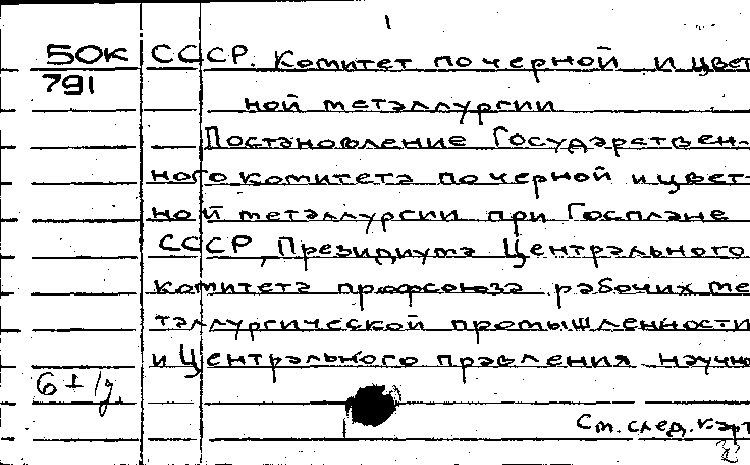 1
50К СССР. Комитет по черной и цвет
791
ной металлургии
Постановление Государствен-
ного комитета по черной и цвет-
ной металлургии при Госплане
СССР, Президиума Центрального
комитета профсоюза рабочих ме
таллургической промышленности
и Центрального правления научно
См. след. карт